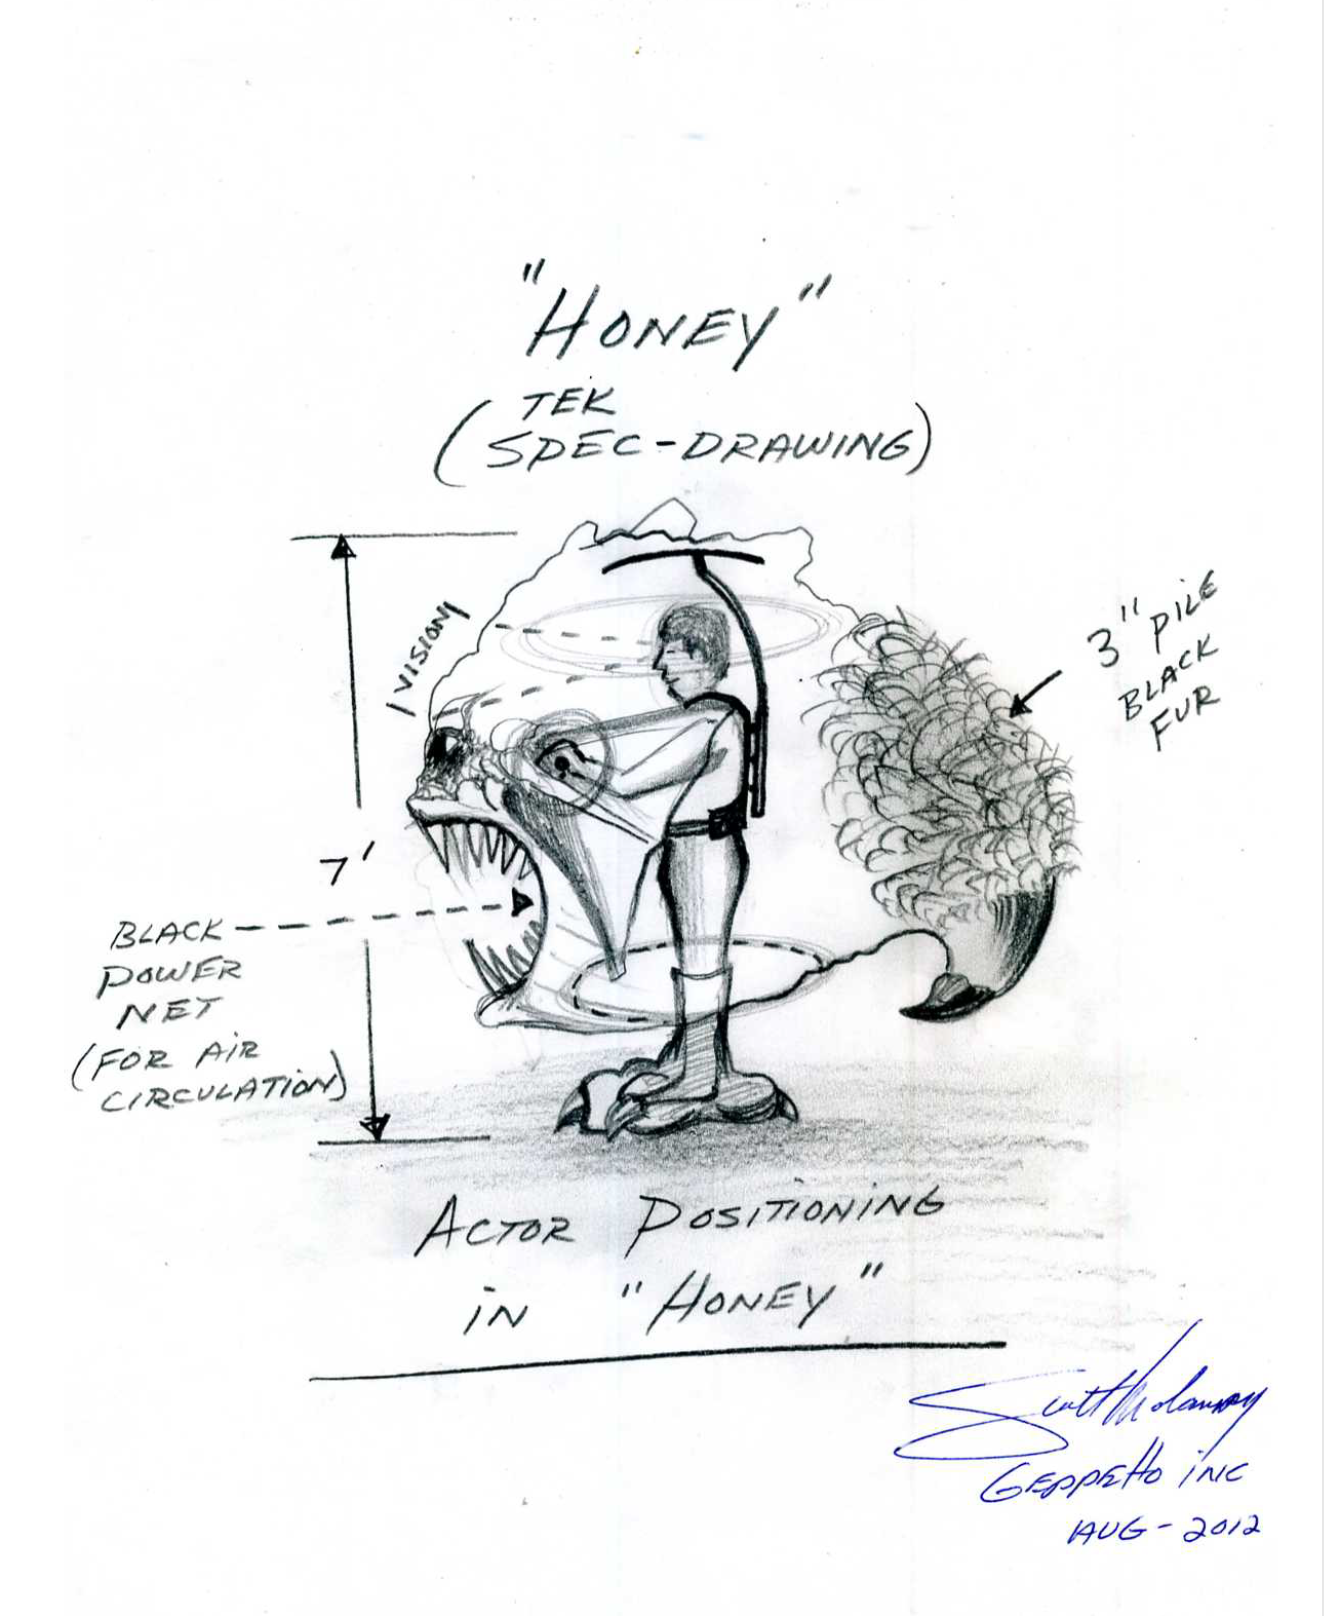 "HONEY"
TEK
(SPEC-DRAWING)
VISION
3" PILE
BLACK
FUR
7'
BLACK
POWER
NET
(FOR AIR
CIRCULATION)
ACTOR POSITIONING
iN "HONEY"
Scott
GEPPEttO iNC
AUG-2012